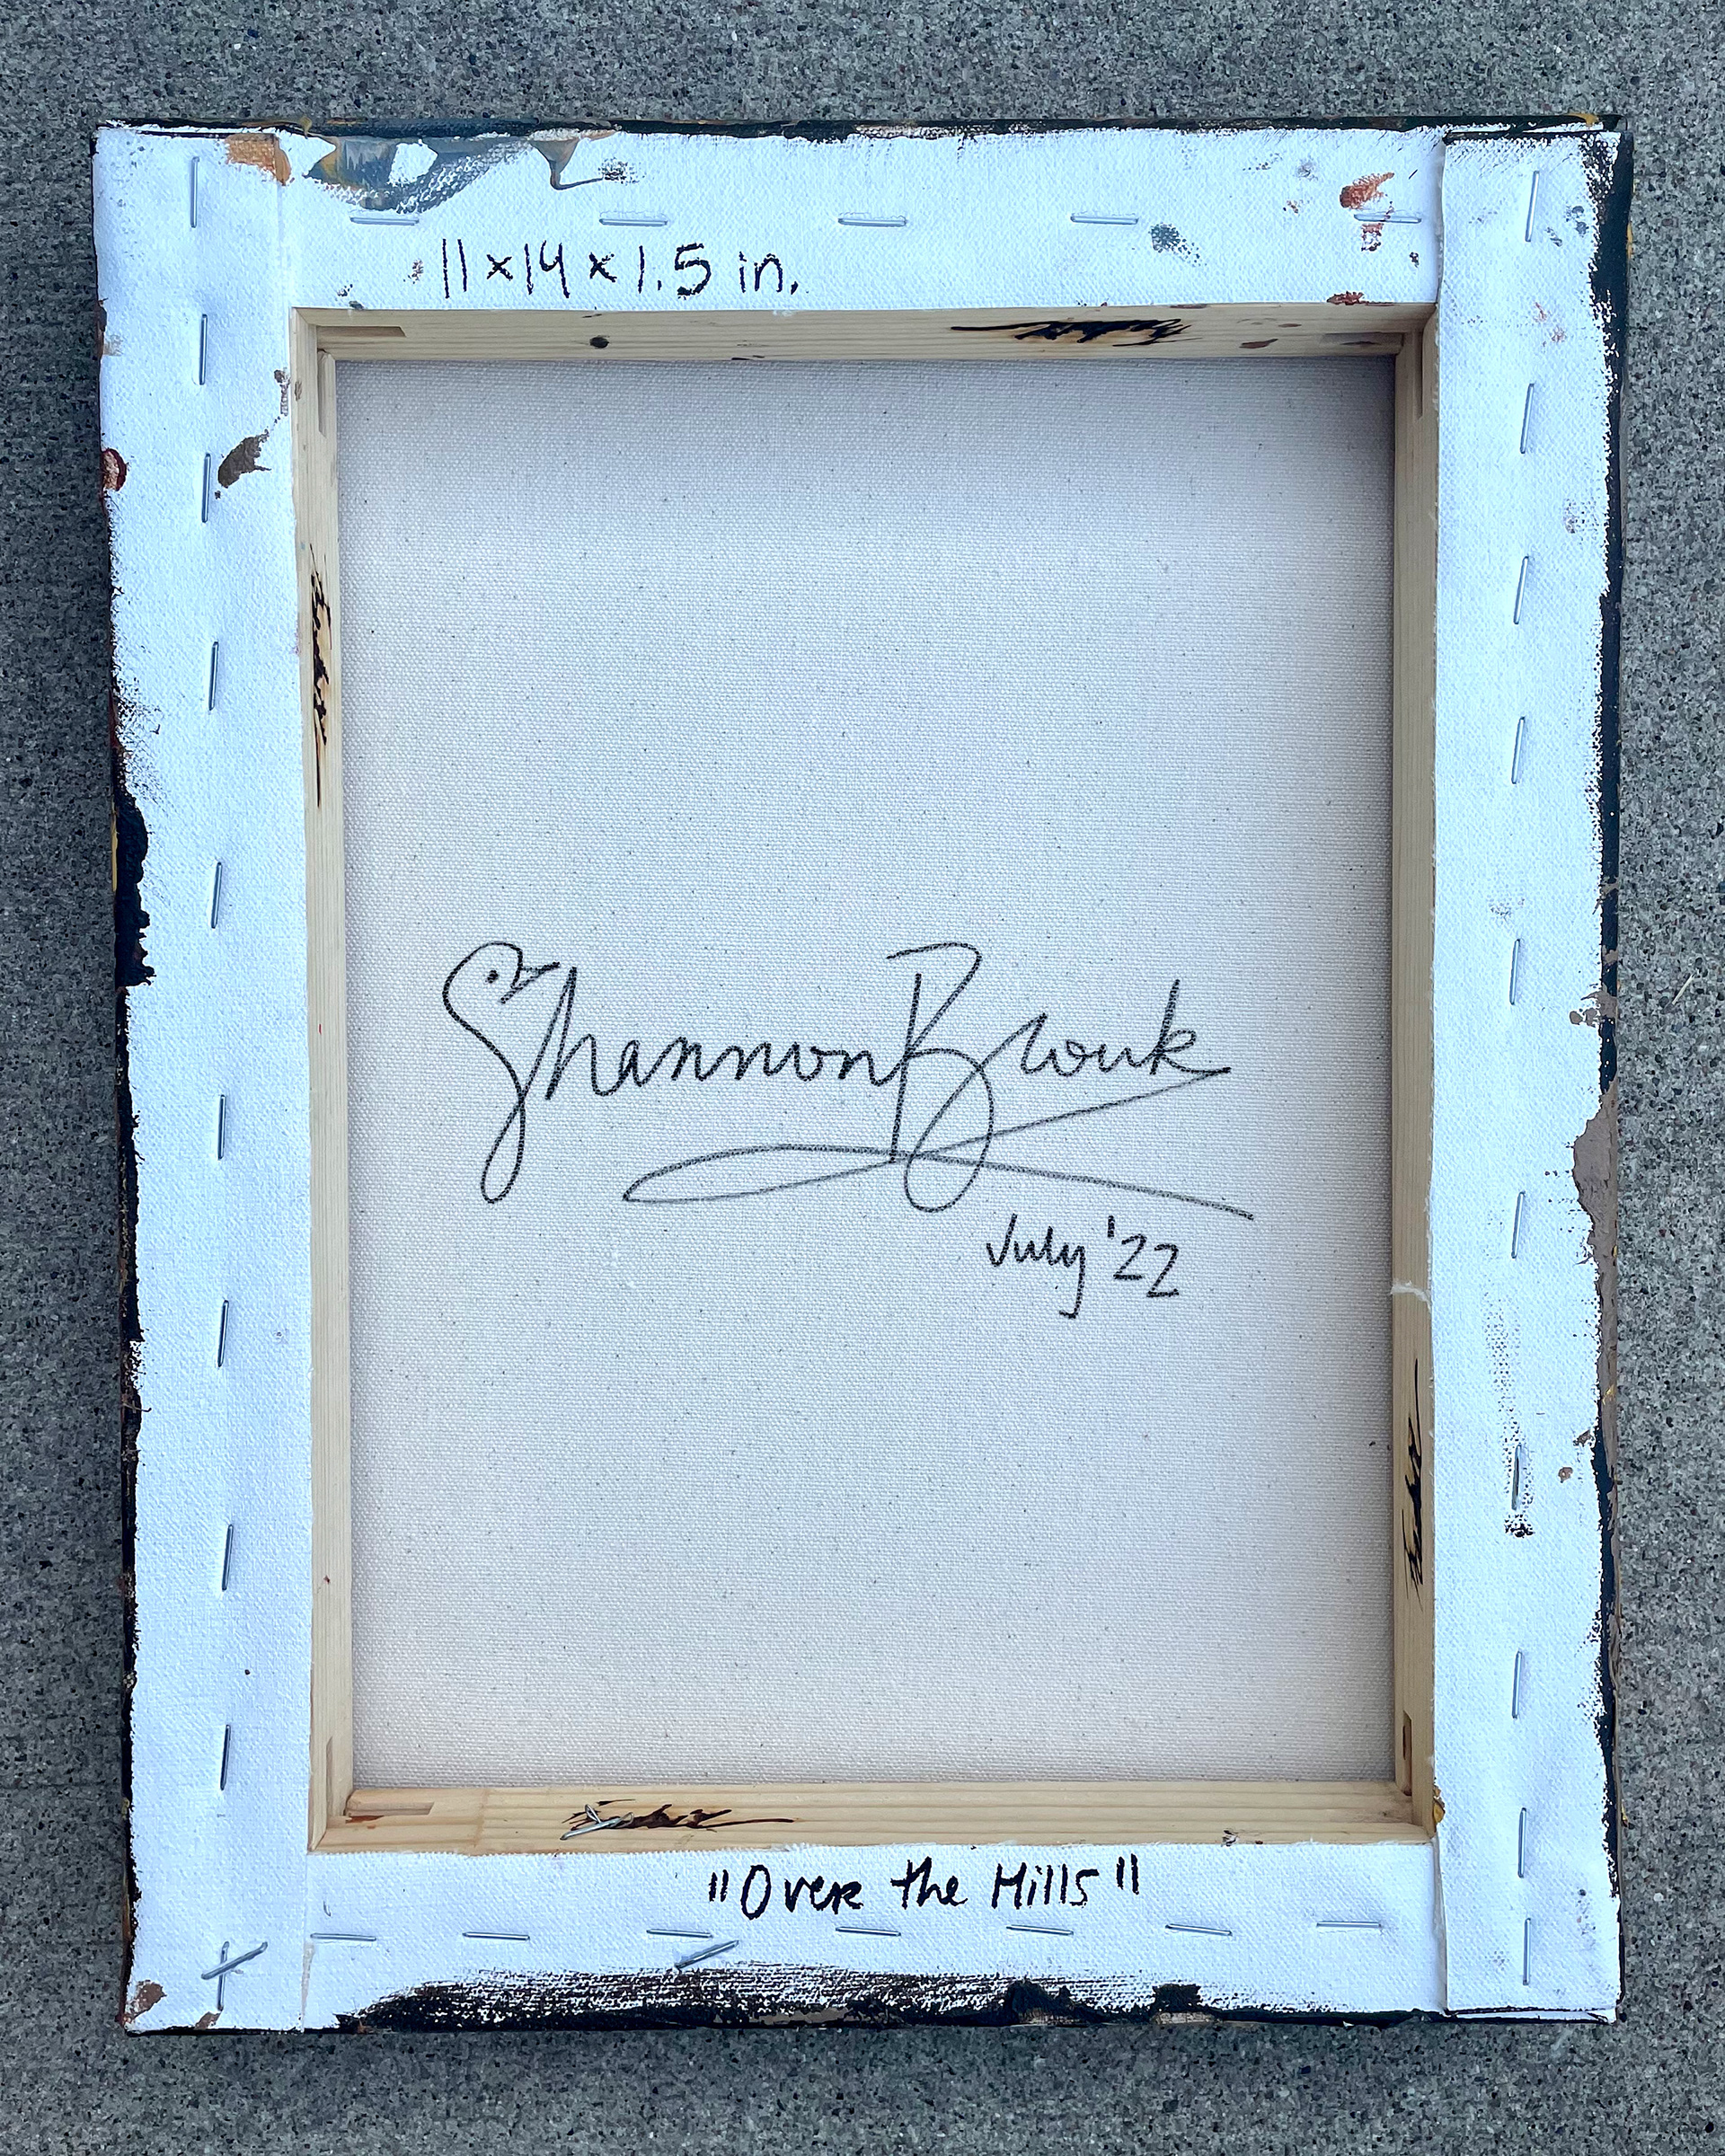 11x14x1.5 in.
Shannon Brouk
July '22
"Over the Hills"